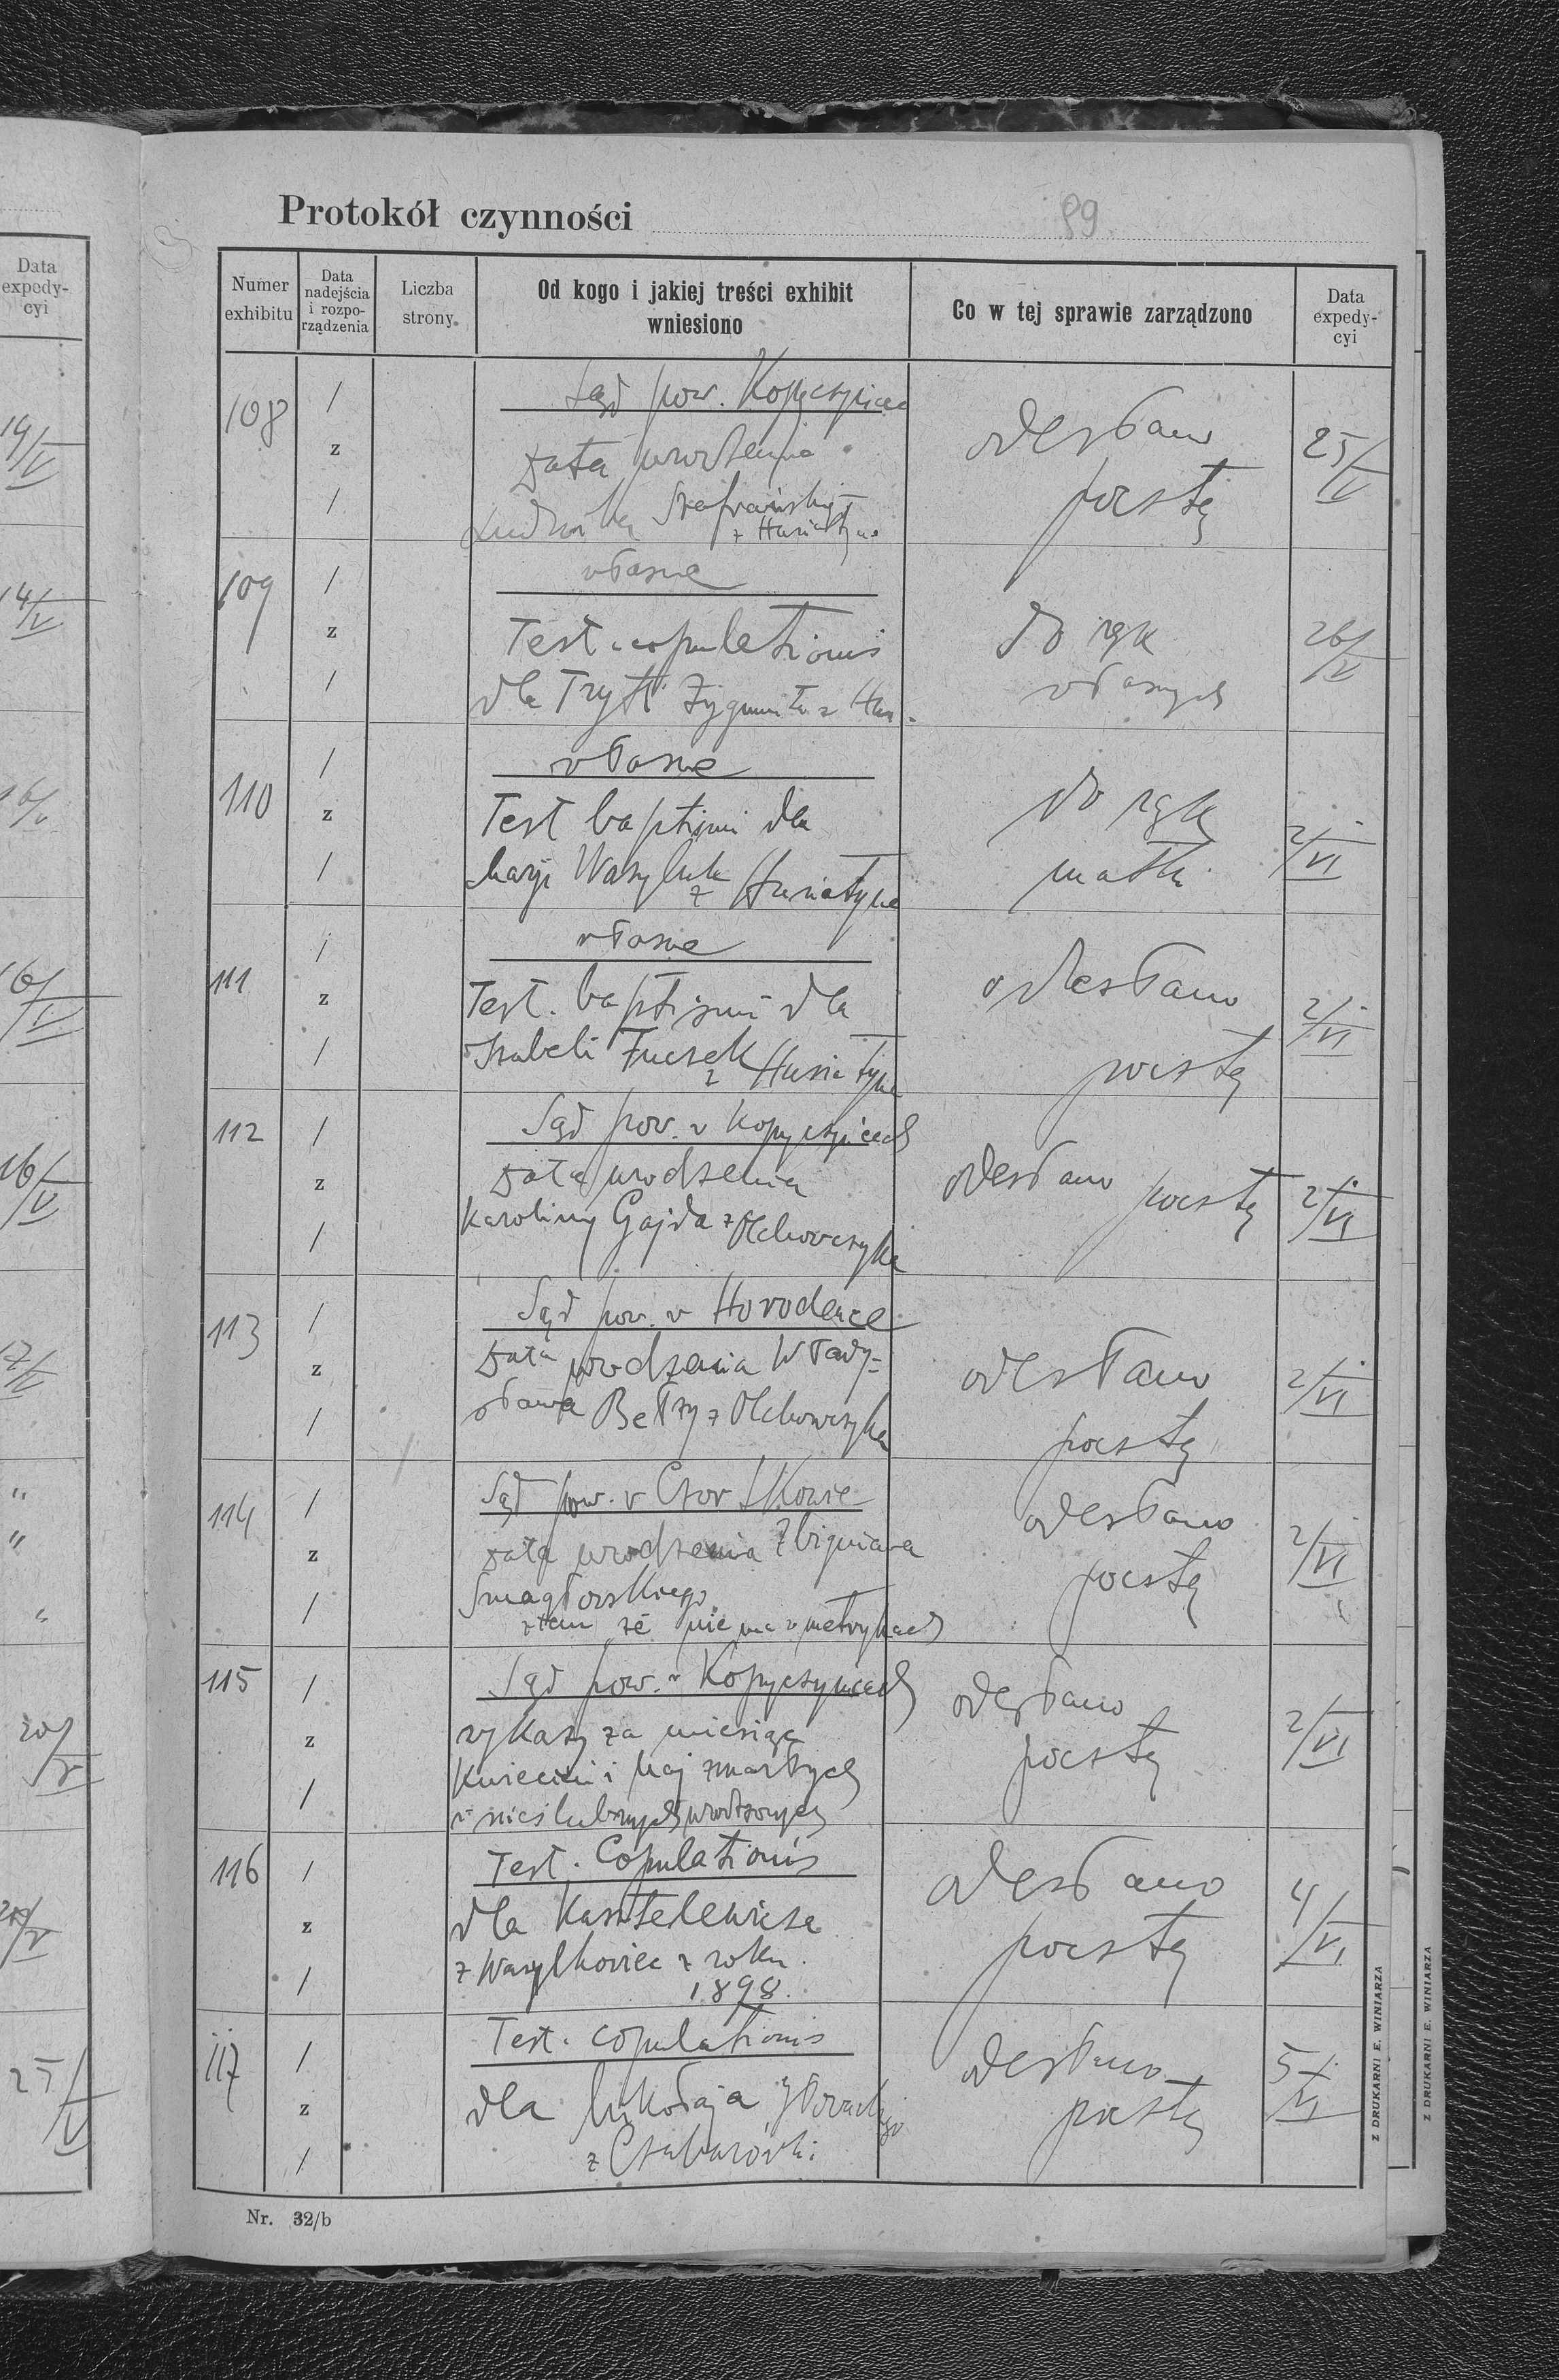 Data
expedy-
cyi
19/V
14/V
16/V
16/V
16/V
17/V
"
"
"
20/V
25/V
Protokół czynności 89
Numer exhibitu
Data nadejścia i rozpo-rządzenia
Liczba strony
Od kogo i jakiej treści exhibit wniesiono
Co w tej sprawie zarządzono
Data expedy-cyi
108 / z /
Sąd pow. Kopyczyńce
Data urodzenia
Ludwika Szafrański
z Husiatyna
odesłano
pocztą
25/V
109 / z /
własne
Test. copulationis
dla Tryt Zygmunta z Hus.
do rąk
własnych
26/V
110 / z /
własne
Test baptismi dla
Marji Wasyluk
z Husiatyna
do rąk
matki
2/VI
111 / z /
własne
Test. baptismi dla
Izabeli Fuczek
z Husiatyna
odesłano
pocztą
2/VI
112 / z /
Sąd pow. w Kopyczyńcach
Data urodzenia
Karoliny Gajda z Olchowczyka
odesłano pocztą
2/VI
113 / z /
Sąd pow. w Horodence
Data urodzenia Włady-
sława Bełzy z Olchowczyka
odesłano
pocztą
2/VI
114 / z /
Sąd pow. w Czortkowie
Data urodzenia Zbigniewa
Smagłowskiego
z tem że nie ma w metrykach
odesłano
pocztą
2/VI
115 / z /
Sąd pow. w Kopyczyńcach
wykazy za miesiąc
Kwiecień i Maj zmarłych
i nieślubnych urodzonych
odesłano
pocztą
2/VI
116 / z /
Test. Copulationis
dla Kasztelewicza
z Wasylkowiec z roku
1898.
odesłano
pocztą
4/VI
117 / z /
Test. copulationis
dla Mikołaja
z Czabarówki
odesłano
pocztą
5/VI
Nr. 32/b
Z DRUKARNI E. WINIARZA
Z DRUKARNI E. WINIARZA